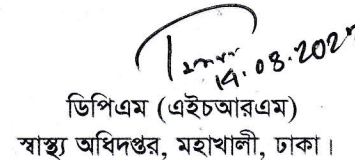 14.08.202
ডিপিএম (এইচআরএম)
স্বাস্থ্য অধিদপ্তর, মহাখালী, ঢাকা।